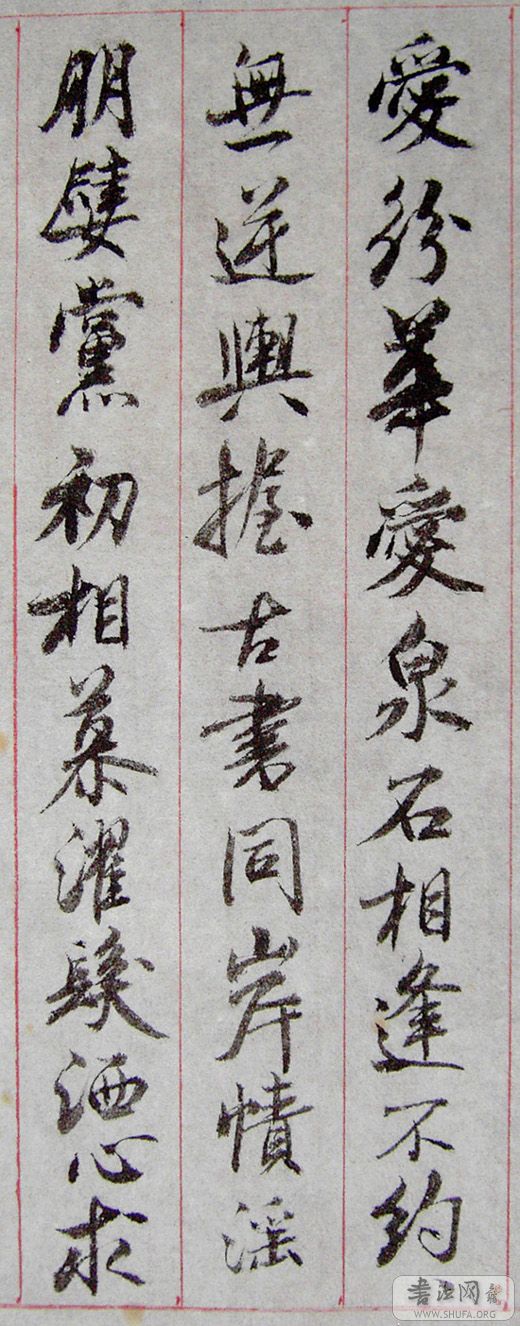 愛紛華愛泉石相逢不約
無逆輿握古書同岸幘淫
朋嬖黨初相慕濯髮洒心求
書法网
WWW.SHUFA.ORG